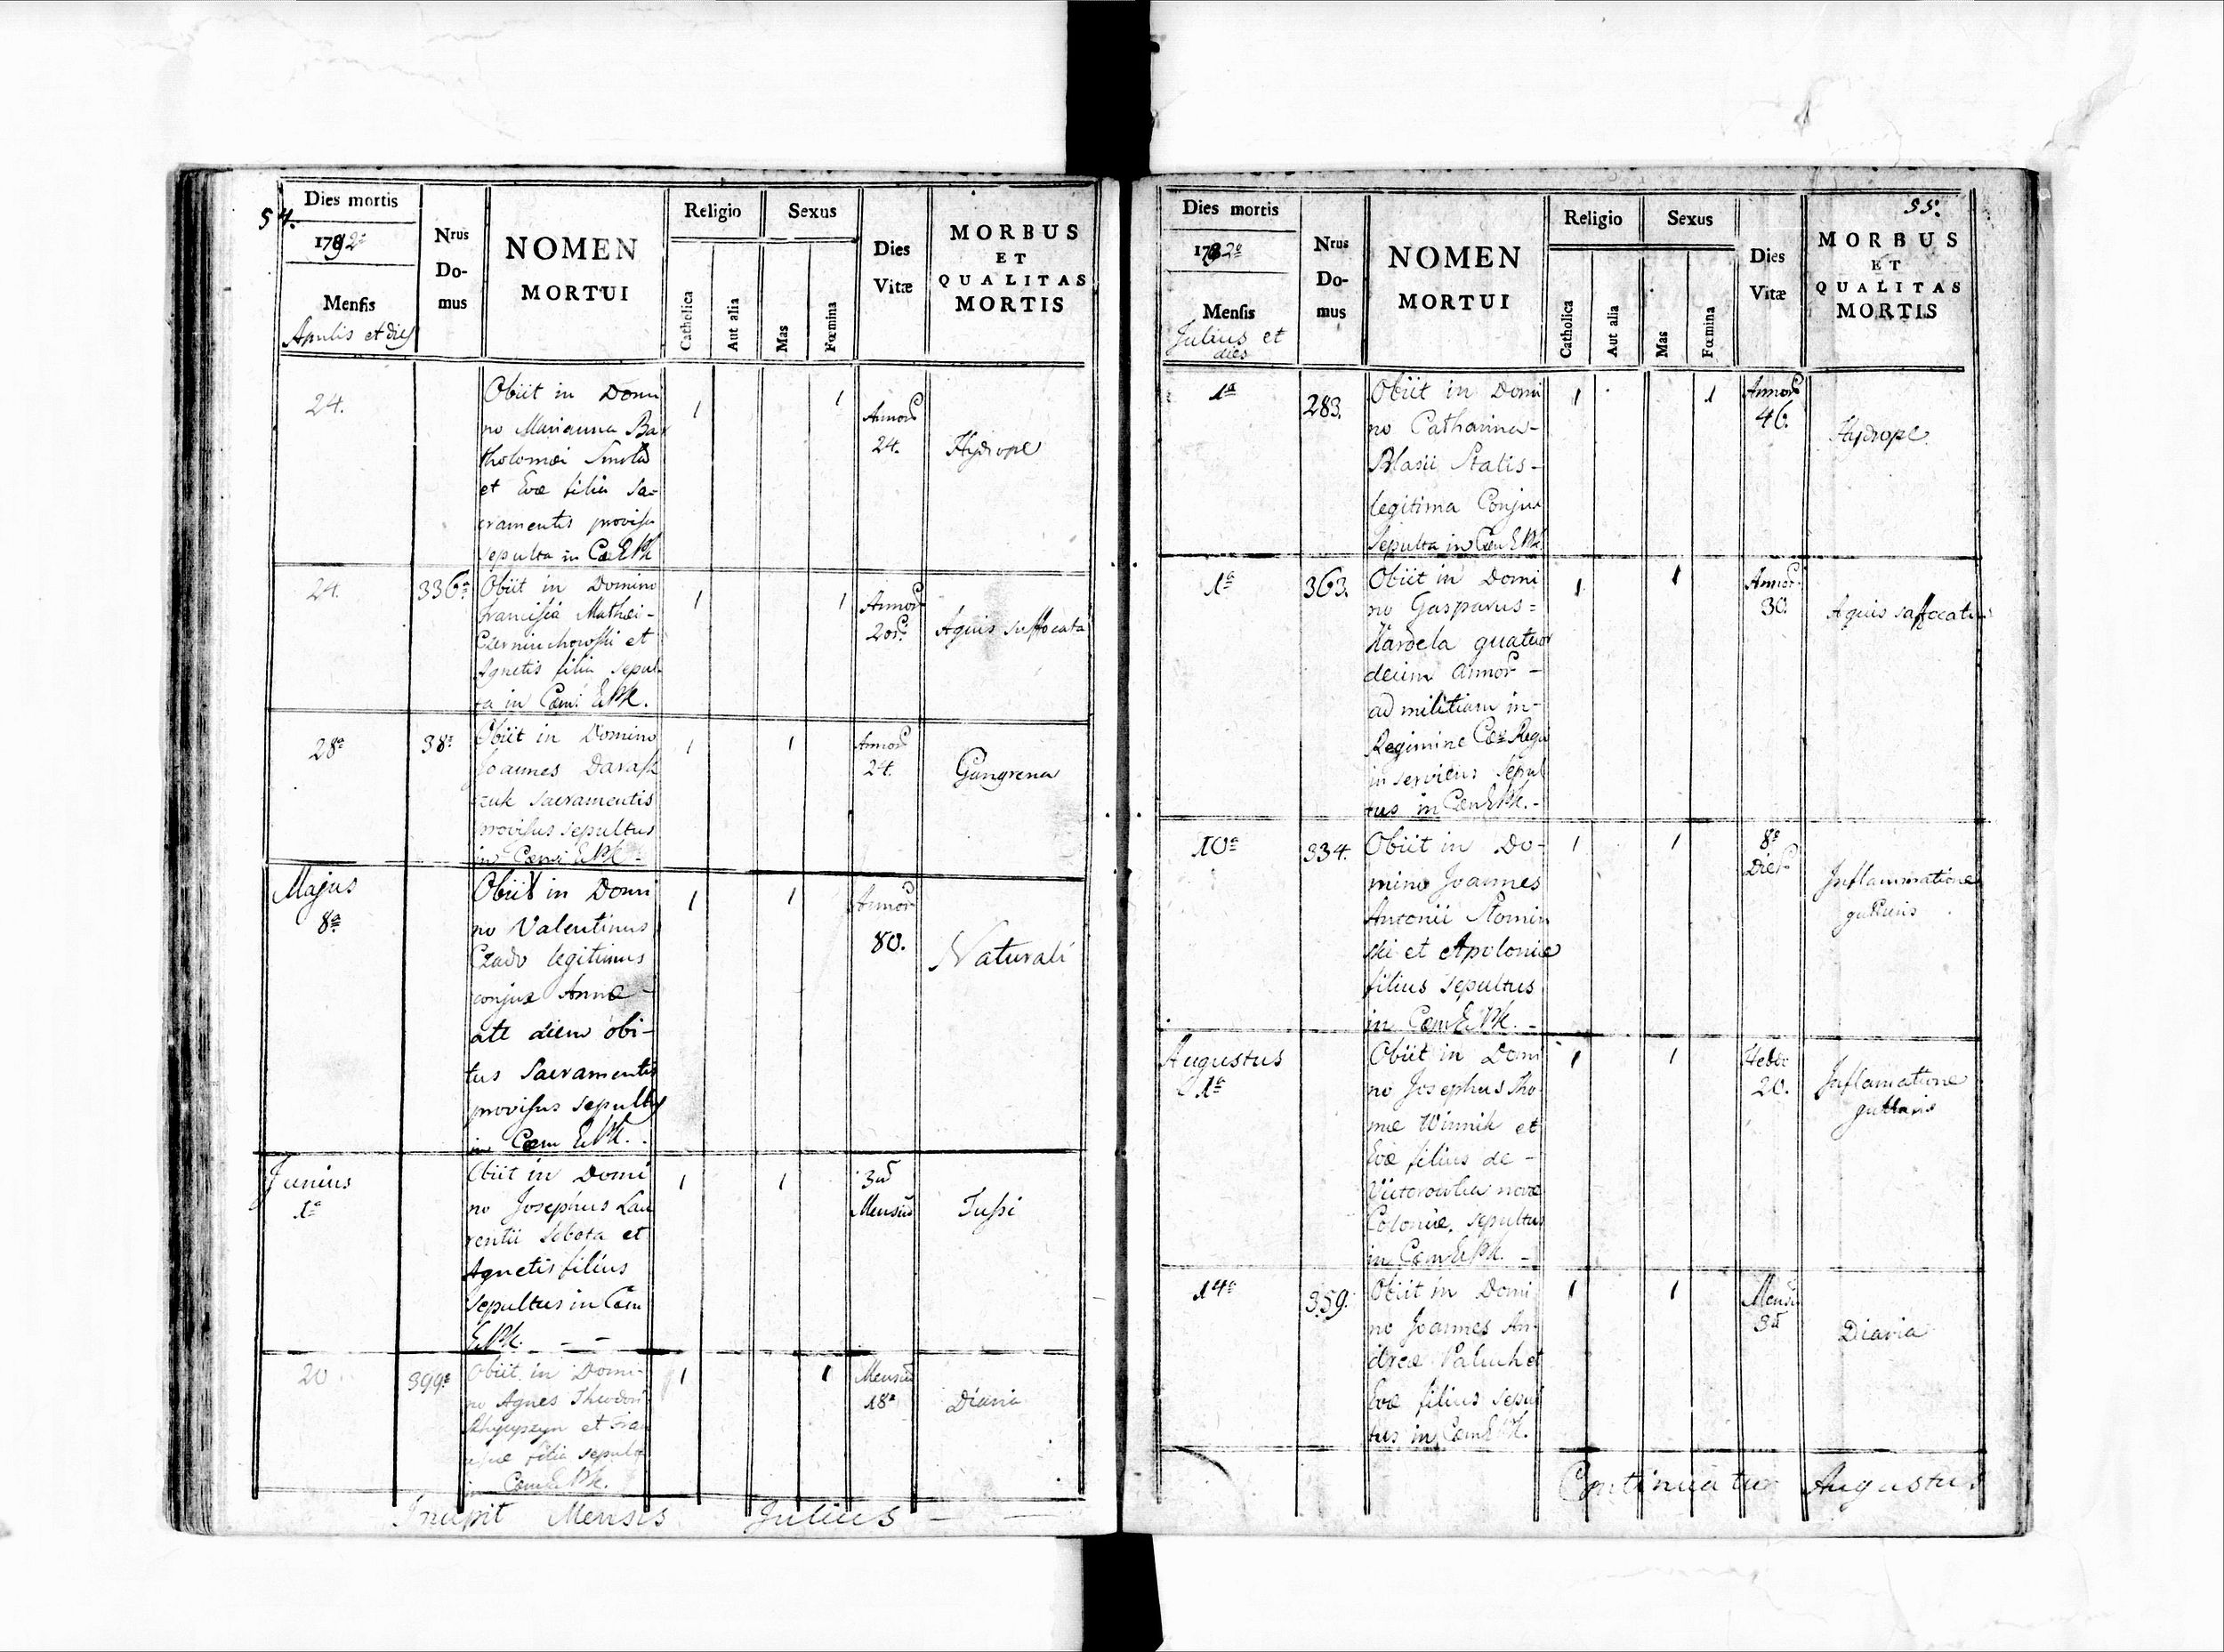 54.
Dies mortis
1792º
Mensis
Aprilis et dies
Nrus
Do-
mus
NOMEN
MORTUI
Religio
Catholica
Aut alia
Sexus
Mas
Fœmina
Dies
Vitæ
MORBUS
ET
QUALITAS
MORTIS
24.
Obiit in Domi
no Marianna Bar
tholomæi
et Evæ filia Sa-
cramentis provisa
sepulta in
1
1
Annor
24.
Hydrope
24.
336ª
Obiit in Domino
Francisca Mathæi-
et
Agnetis filia sepul
ta in Cæm:
1
1
Annor
20
Aquis suffocata
28ª
38ª
Obiit in Domino
Joannes Darasz
czuk Sacramentis
provisus sepultus
in Cæm
1
1
Annor
24.
Gangrena
Majus
8ª
Obiit in Domi
no Valentinus
Czado legitimus
conjux Annæ -
ante diem obi-
tus Sacramentis
provisus sepultus
in Cæm
1
1
Annor
80.
Naturali
Junius
1ª
Obiit in Domi
no Josephus Lau
rentii Sobota et
Agnetis filius
sepultus in Cæm
1
1
3
Mensiu
Tussi
20
399ª
Obiit in Domi-
no Agnes Theodori
et Fran
filia sepulta
in Cæm
1
1
Mensiu
18ª
Diaria
Incipit Mensis Julius -
55.
Dies mortis
1792º
Mensis
Julius et
dies
Nrus
Do-
mus
NOMEN
MORTUI
Religio
Catholica
Aut alia
Sexus
Mas
Fœmina
Dies
Vitæ
MORBUS
ET
QUALITAS
MORTIS
1ª
283.
Obiit in Domi
no Catharina-
Blasii Stalis-
legitima Conjux
sepulta in Cæm
1
1
Annor
46.
Hydrope
1ª
363.
Obiit in Domi
no Gasparus=
Hardela quatuor
decim annor -
ad militiam in-
Regimine Cæs Regio
in serviens sepul
tus in Cæm
1
1
Annor
30.
Aquis suffocatus
10ª
334.
Obiit in Do-
mino Joannes
Antonii Slomin
ski et Apoloniæ
filius sepultus
in Cæm
1
1
8ª
Dier
Inflammatione
gutturis
Augustus
1ª
Obiit in Domi
no Josephus Tho-
mæ Winnik et
Evæ filius de -
novæ
Coloniæ, sepultus
in Cæm
1
1
Hebdo
20.
Inflamatione
gutturis
14ª
359.
Obiit in Domi
no Joannes An-
dreæ Paluch et
Evæ filius sepul
tus in Cæm
1
1
Mensiu
3
Diaria
Continuatur Augustus